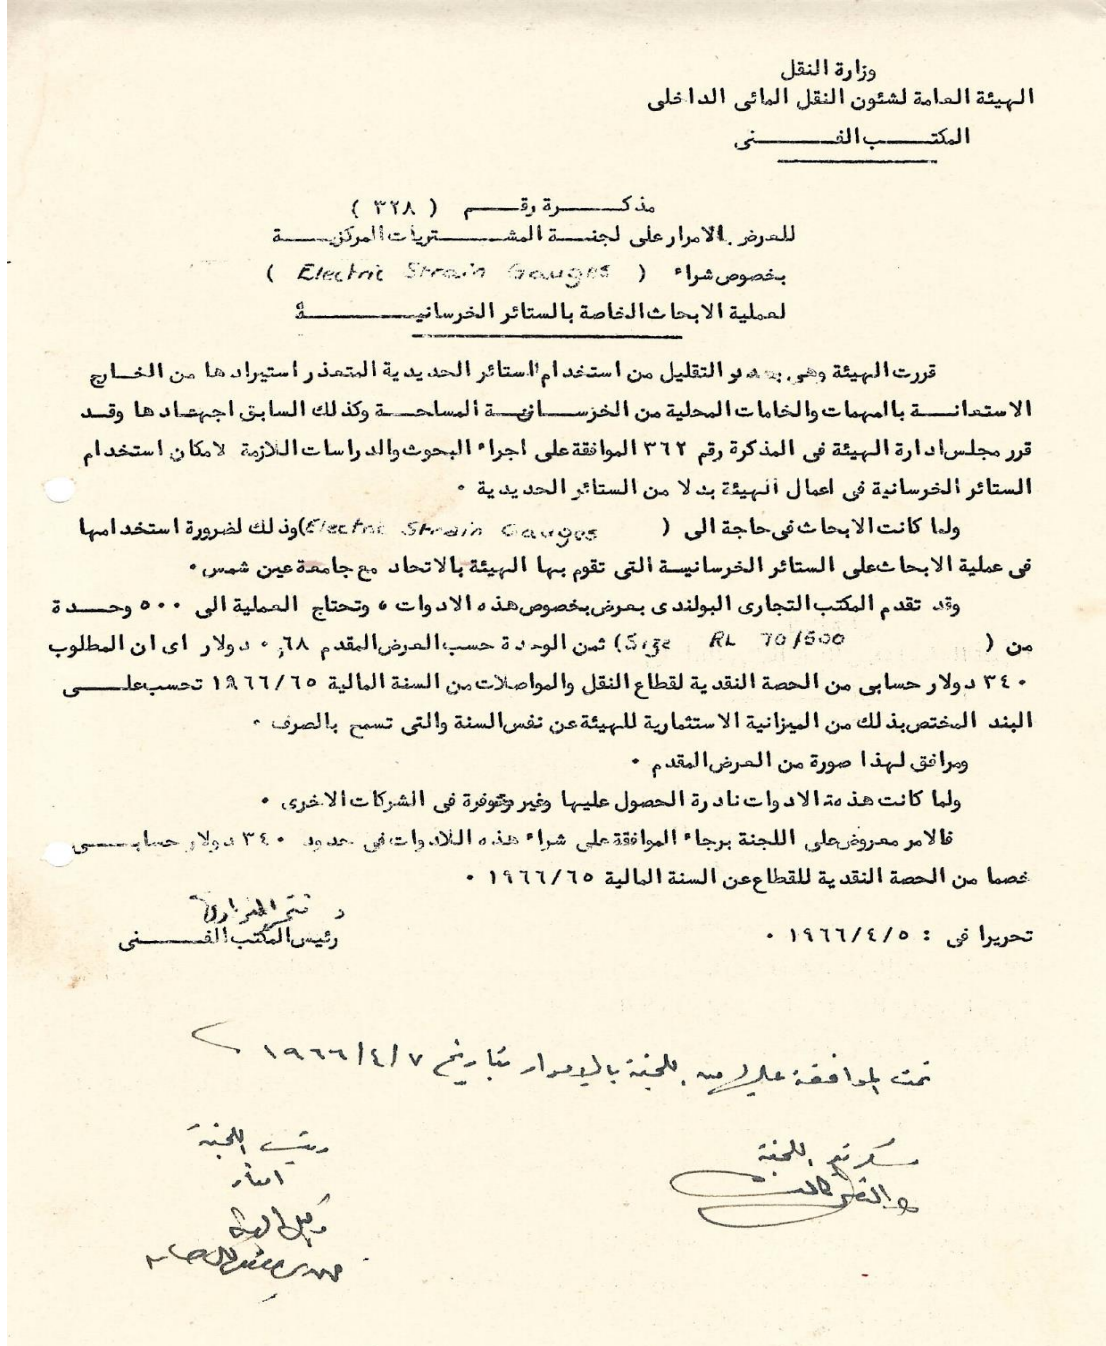 وزارة النقل
الهيئة العامة لشئون النقل المائى الداخلى
المكتب الفنى
مذكرة رقم ( ٣٢٨ )
للعرض الامرار على لجنة المشتريات المركزية
بخصوص شراء ( Electric Strain Gauges )
لعملية الابحاث الخاصة بالستائر الخرسانية
قررت الهيئة وهى التقليل من استخدام الستائر الحديدية المتعذر استيرادها من الخارج
الاستعانة بالمهمات والخامات المحلية من الخرسانية المسلحة وكذلك السابق اجهعادها وقد
قرر مجلس ادارة الهيئة فى المذكرة رقم ٣٦٢ الموافقة على اجراء البحوث والدراسات اللازمة لامكان استخدام
الستائر الخرسانية فى اعمال الهيئة بدلا من الستائر الحديدية ٠
ولما كانت الابحاث فى حاجة الى ( Electric Strain Gauges ) وذلك لضرورة استخدامها
فى عملية الابحاث على الستائر الخرسانية التى تقوم بها الهيئة بالاتحاد مع جامعة عين شمس ٠
وقد تقدم المكتب التجارى البولندى بعرض بخصوص هذه الادوات ، وتحتاج العملية الى ٥٠٠ وحدة
من ( Size RL 70/500 ) ثمن الوحدة حسب العرض المقدم ٠,٦٨ دولار اى ان المطلوب
٣٤٠ دولار حسابى من الحصة النقدية لقطاع النقل والمواصلات من السنة المالية ١٩٦٦/٦٥ تحسب على
البند المختص بذلك من الميزانية الاستثمارية للهيئة عن نفس السنة والتى تسمح بالصرف ٠
ومرافق لهذا صورة من العرض المقدم ٠
ولما كانت هذه الادوات نادرة الحصول عليها وغير متوفرة فى الشركات الاخرى ٠
فالامر معروض على اللجنة برجاء الموافقة على شراء هذه اللادوات فى حدود ٣٤٠ دولار حسابى
خصما من الحصة النقدية للقطاع عن السنة المالية ١٩٦٦/٦٥ ٠
رئيس المكتب الفنى
تحريرا فى : ١٩٦٦/٤/٥ ٠
تمت الموافقة عليها من اللجنة بالامرار بتاريخ ١٩٦٦/٤/٧
رئيس اللجنة
سكرتير اللجنة